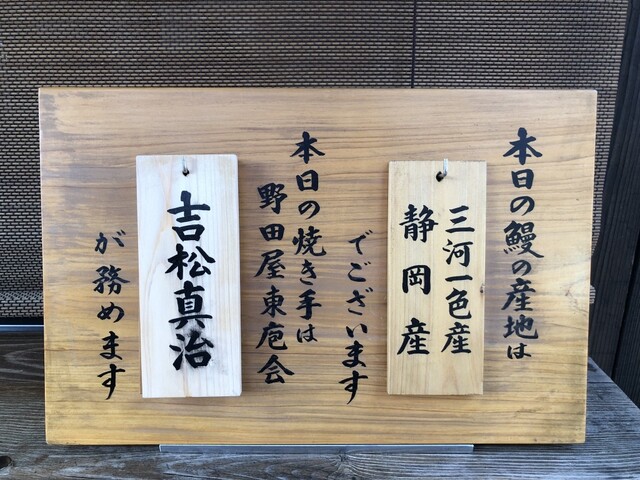 本日の鰻の産地は
三河一色産
静岡産
でございます
本日の焼き手は
野田屋東庖会
吉松真治
が務めます